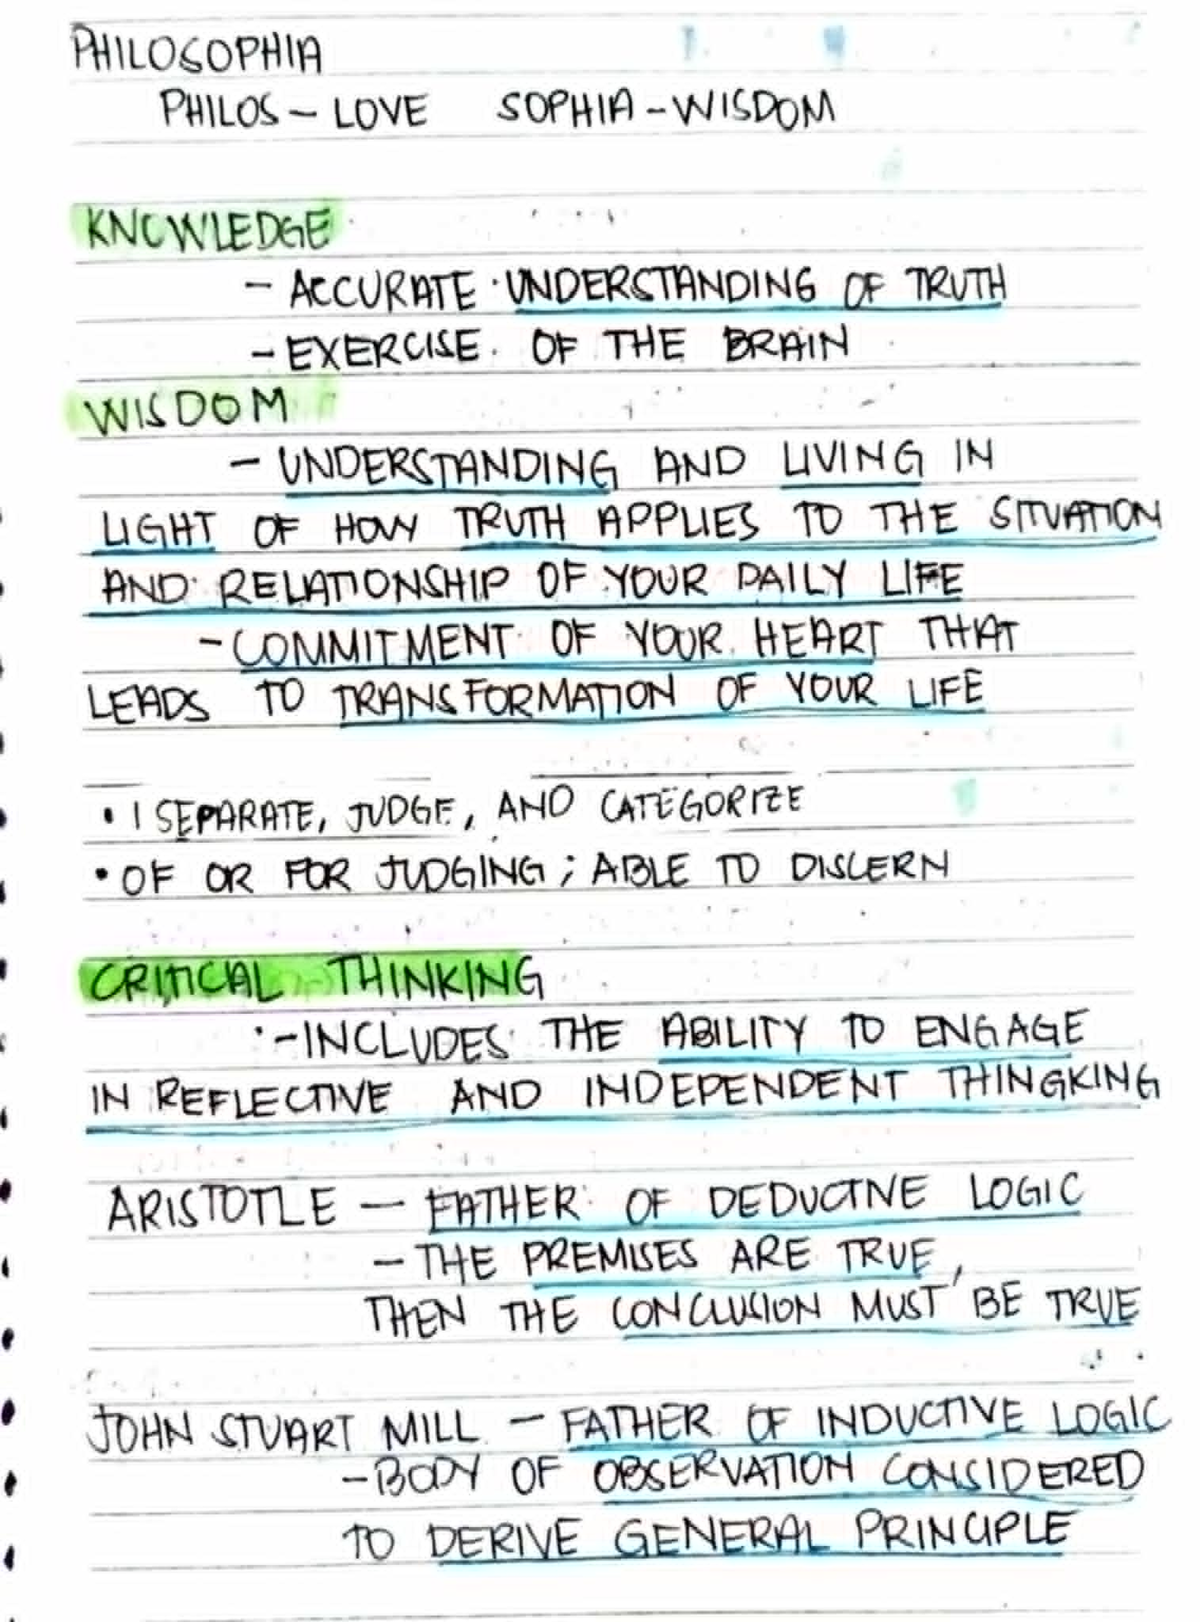 PHILOSOPHIA
PHILOS - LOVE SOPHIA - WISDOM
KNOWLEDGE
- ACCURATE UNDERSTANDING OF TRUTH
- EXERCISE OF THE BRAIN
WISDOM
- UNDERSTANDING AND LIVING IN
LIGHT OF HOW TRUTH APPLIES TO THE SITUATION
AND RELATIONSHIP OF YOUR DAILY LIFE
- COMMITMENT OF YOUR HEART THAT
LEADS TO TRANSFORMATION OF YOUR LIFE
• I SEPARATE, JUDGE, AND CATEGORIZE
• OF OR FOR JUDGING ; ABLE TO DISCERN
CRITICAL THINKING
- INCLUDES THE ABILITY TO ENGAGE
IN REFLECTIVE AND INDEPENDENT THINGKING
ARISTOTLE - FATHER OF DEDUCTIVE LOGIC
- THE PREMISES ARE TRUE,
THEN THE CONCLUSION MUST BE TRUE
JOHN STUART MILL - FATHER OF INDUCTIVE LOGIC
- BODY OF OBSERVATION CONSIDERED
TO DERIVE GENERAL PRINCIPLE